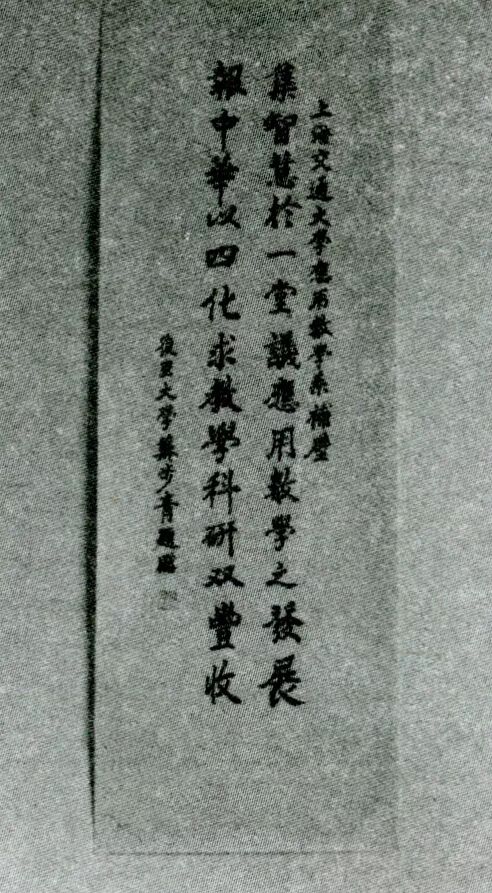 上海交通大學應用數學系補壁
集智慧於一堂議應用數學之發展
報中華以四化求教學科研双豐收
復旦大學蘇步青題